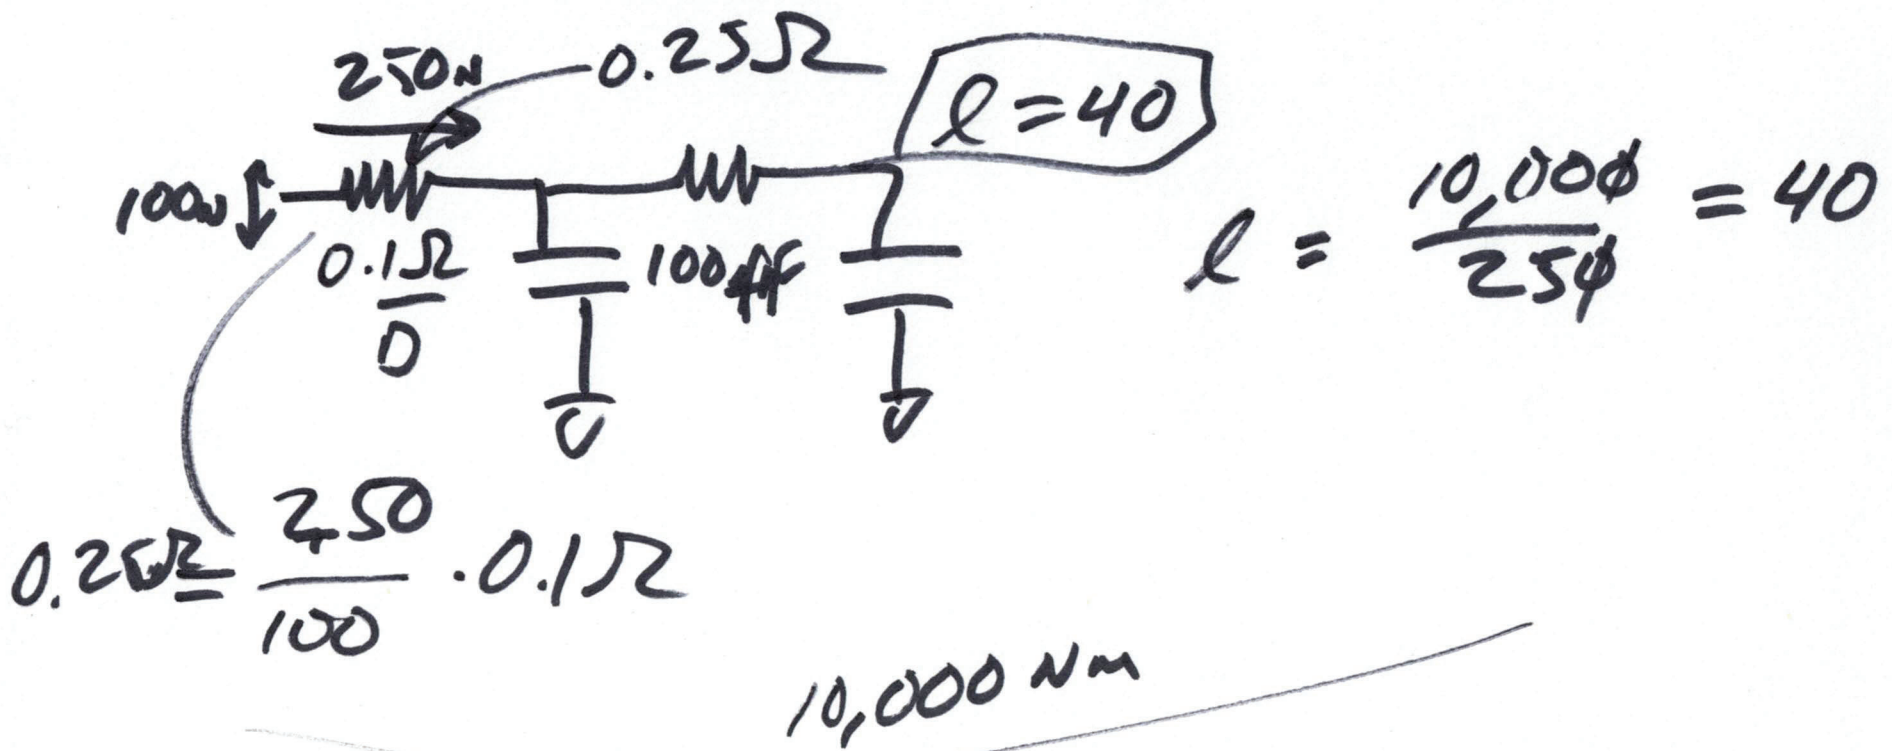 250n
0.25Ω
l = 40
100n
0.1Ω
D
100aF
l = 10,000 / 250 = 40
0.25Ω = 250 / 100 · 0.1Ω
10,000 nm